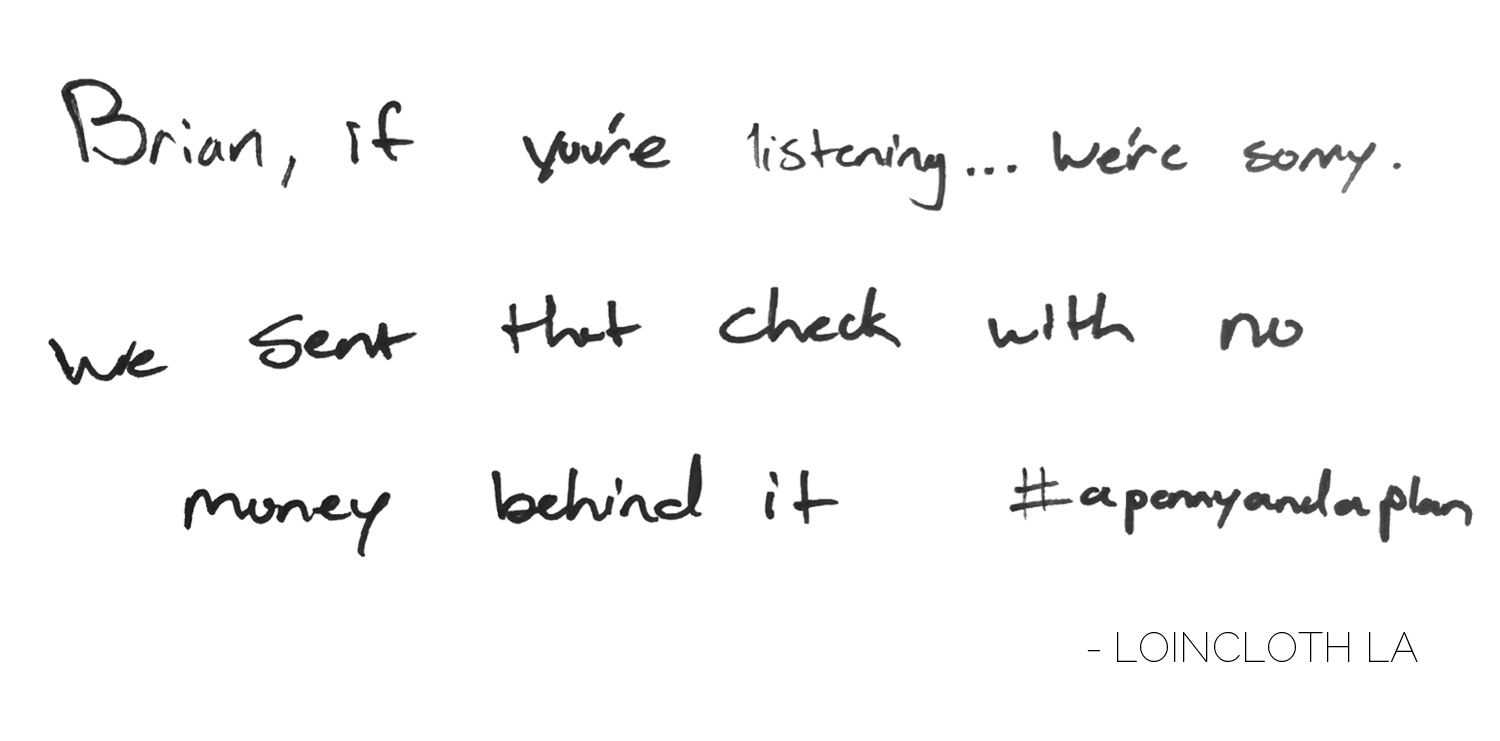 Brian, if you're listening... We're sorry.
We sent that check with no
money behind it #apennyandaplan
- LOINCLOTH LA